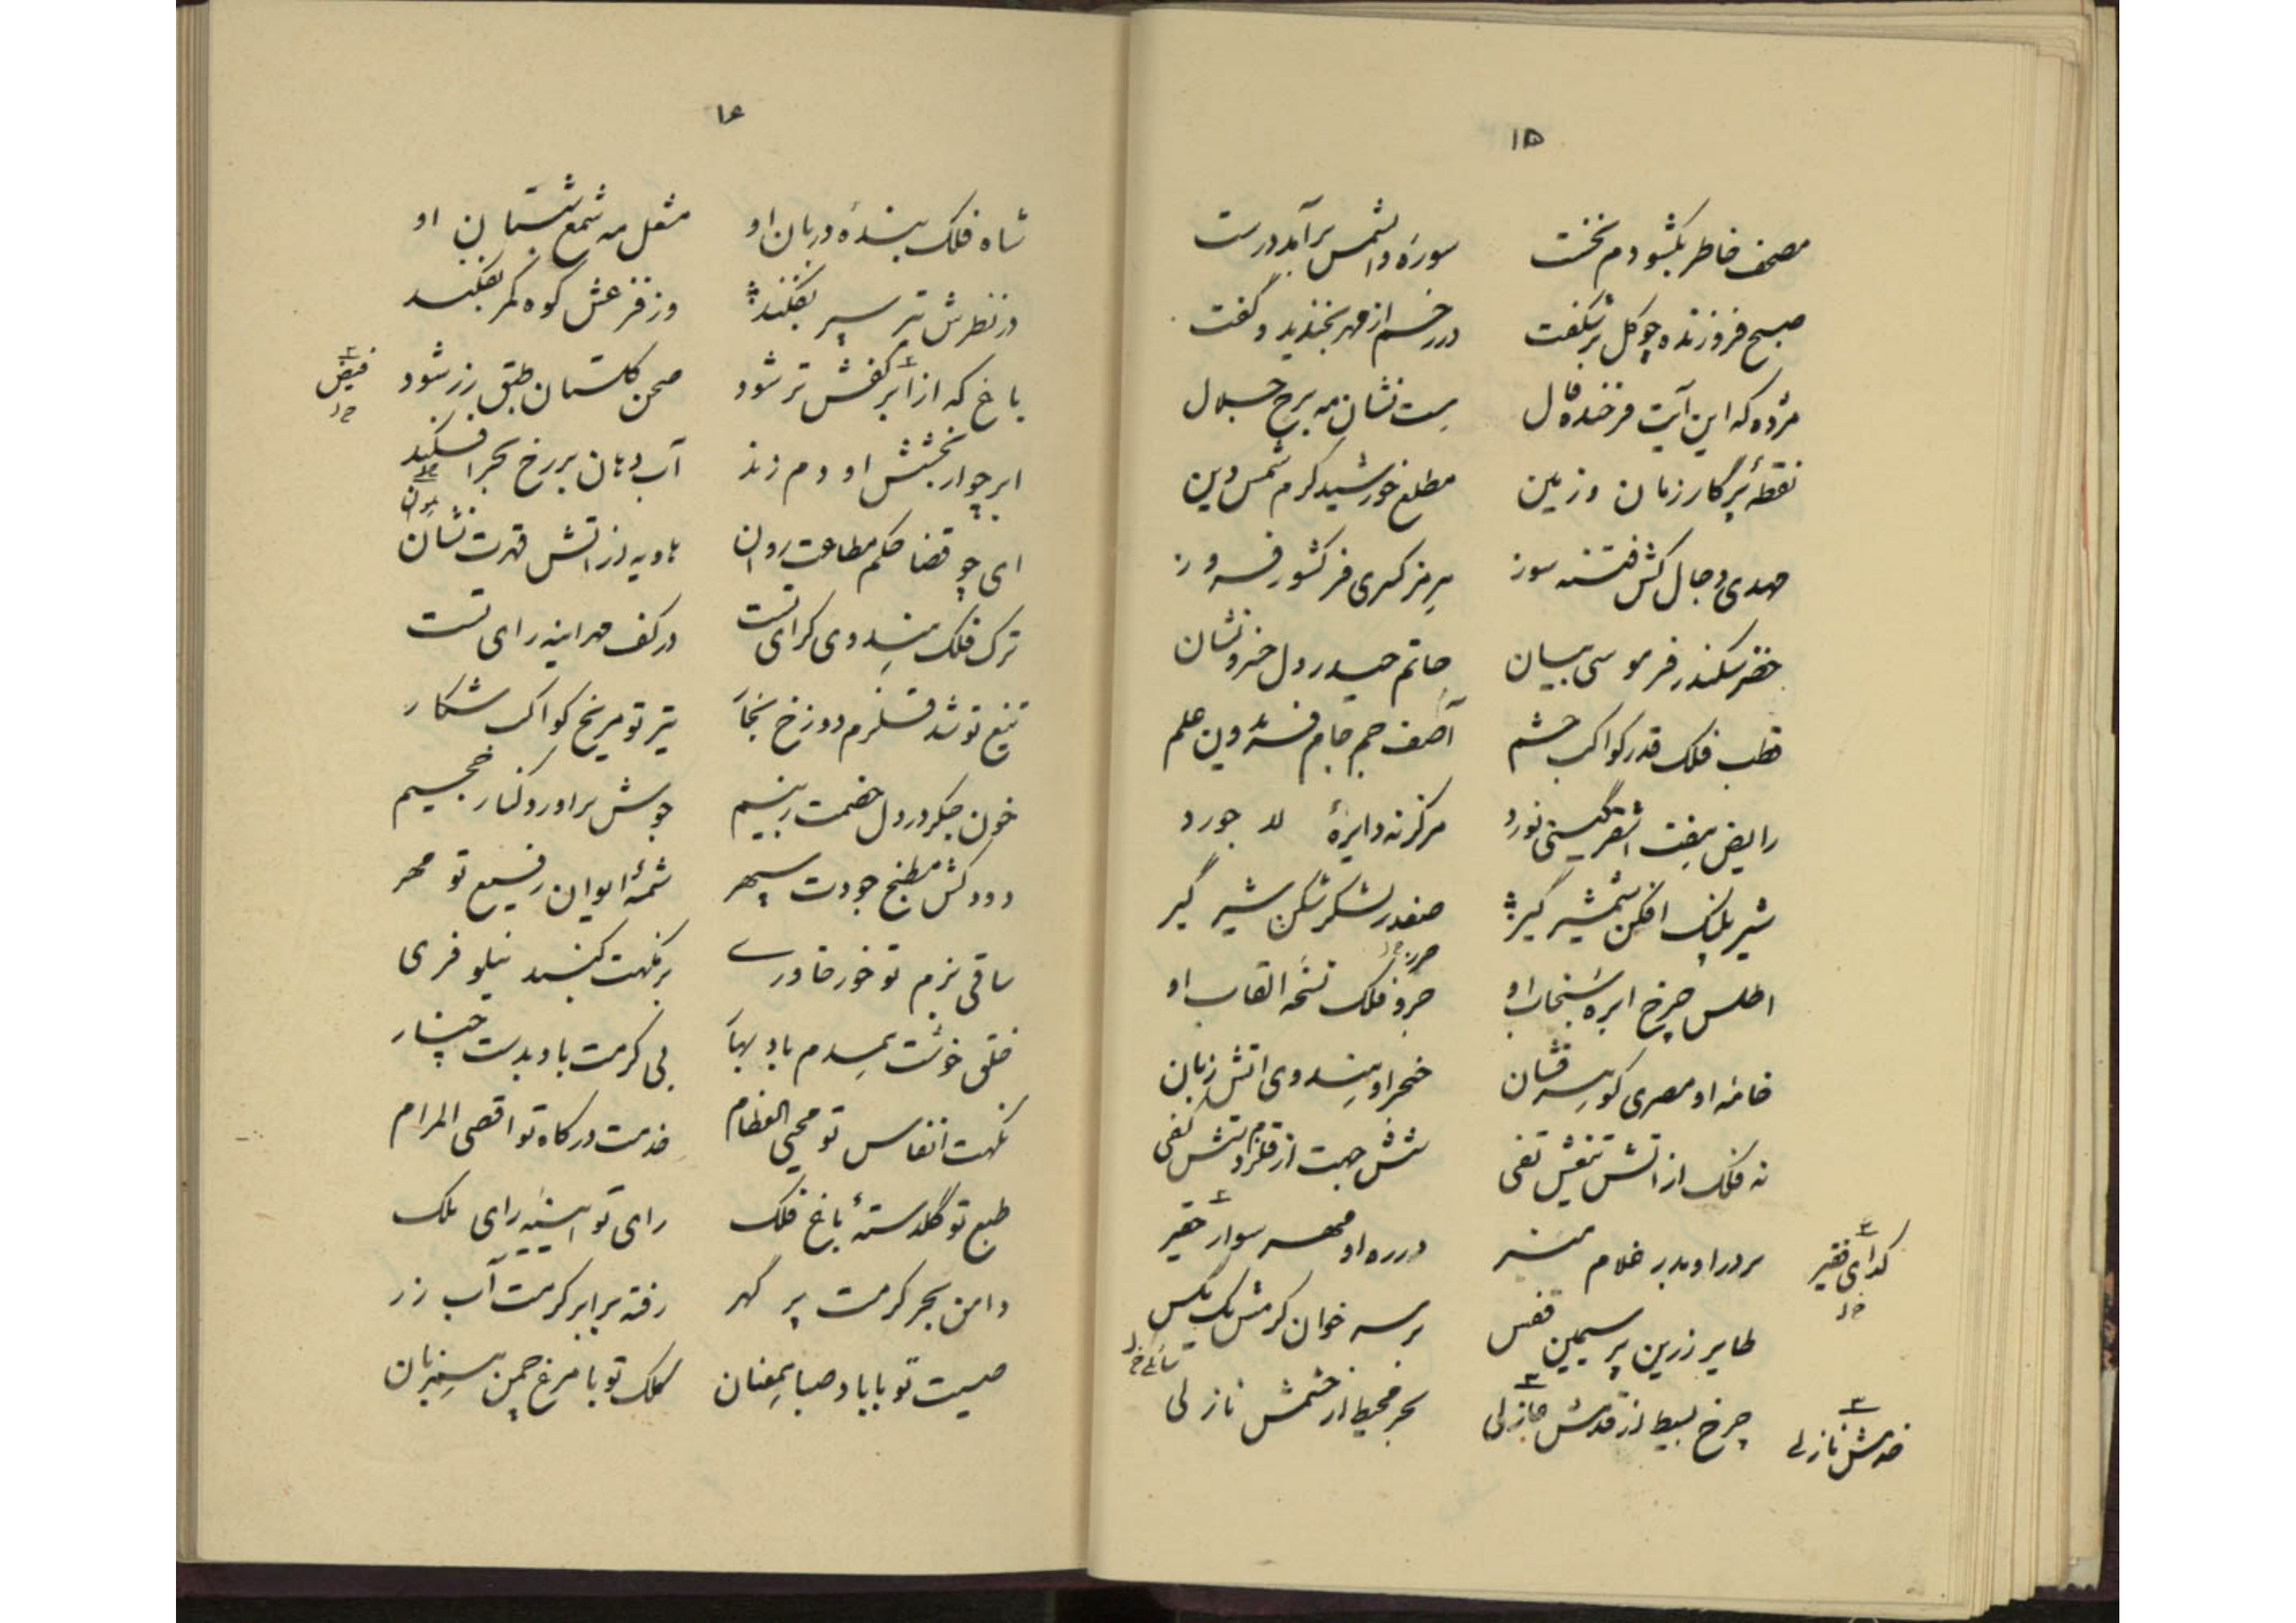 ۱۵
مصحف خاطر بگشودم نخست سوره والشمس برآمد درست
صبح فروزنده چو گل برشگفت در رخم از مهر بخندید و گفت
مژده که این آیت فرخنده فال هست نشان مه برج جمال
نقطهٔ پرگار زمان و زمین مطلع خورشید کرم شمس دین
مهدی دجال کش فتنه سوز هرمز کسری فر کشور فروز
خضر سکندر فر موسی بیان حاتم حیدر دل خسرو نشان
قطب فلک قدر کواکب حشم آصف جم جام فریدون علم
رایض هفت اشقر گیتی نورد مرکز نه دایرهٔ لاجورد
شیر پلنگ افکن شمشیر گیر صفدر لشکر شکن شیر گیر
اطلس چرخ ابره سنجاب او جزو فلک نسخه القاب او
خامه او مصری گوهر فشان خنجر او هندوی اتش زبان
نه فلک از اتش تیغش تفی شش جهت از قلزم دستش کفی
بر در او بدر غلام منیر در ره او مهر سوار حقیر
گدای فقیر
طایر زرین پر سیمین قفس بر سر خوان کرمش یک مگس
چرخ بسیط از قدمش منزلی بحر محیط از خشمش نازلی
۱۶
شاه فلک بندهٔ دربان او مشعل مه شمع شبستان او
در نظرش تیر سپر بفکند وز فزعش کوه کمر بفکند
باغ که از ابر کفش تر شود صحن گلستان طبق زر شود
فیض
ابر چو از بخشش او دم زند آب دهان بر رخ بحر افکند
ای چو قضا حکم مطاعت روان هاویه از اتش قهرت نشان
ترک فلک هندوی کرای تست در کف مهر اینه رای تست
تیغ تو شد قلزم دوزخ بخار تیر تو مریخ کواکب شکار
خون جگر در دل خصمت ز بیم جوش براورد و کنار جحیم
دودکش مطبخ جودت سپهر شمهٔ ایوان رفیع تو مهر
ساقی بزم تو خور خاوری برگهت گنبد نیلوفری
خلق خوشت همدم باد بهار بی کرمت باد بدست چنار
نکهت انفاس تو محیی العظام خدمت درگاه تو اقصی المرام
طبع تو گلدستهٔ باغ فلک رای تو اینه رای ملک
دامن بحر کرمت پر گهر رفته بر ابر کرمت آب زر
صیت تو با باد صبا همعنان کلک تو با مرغ چمن همزبان